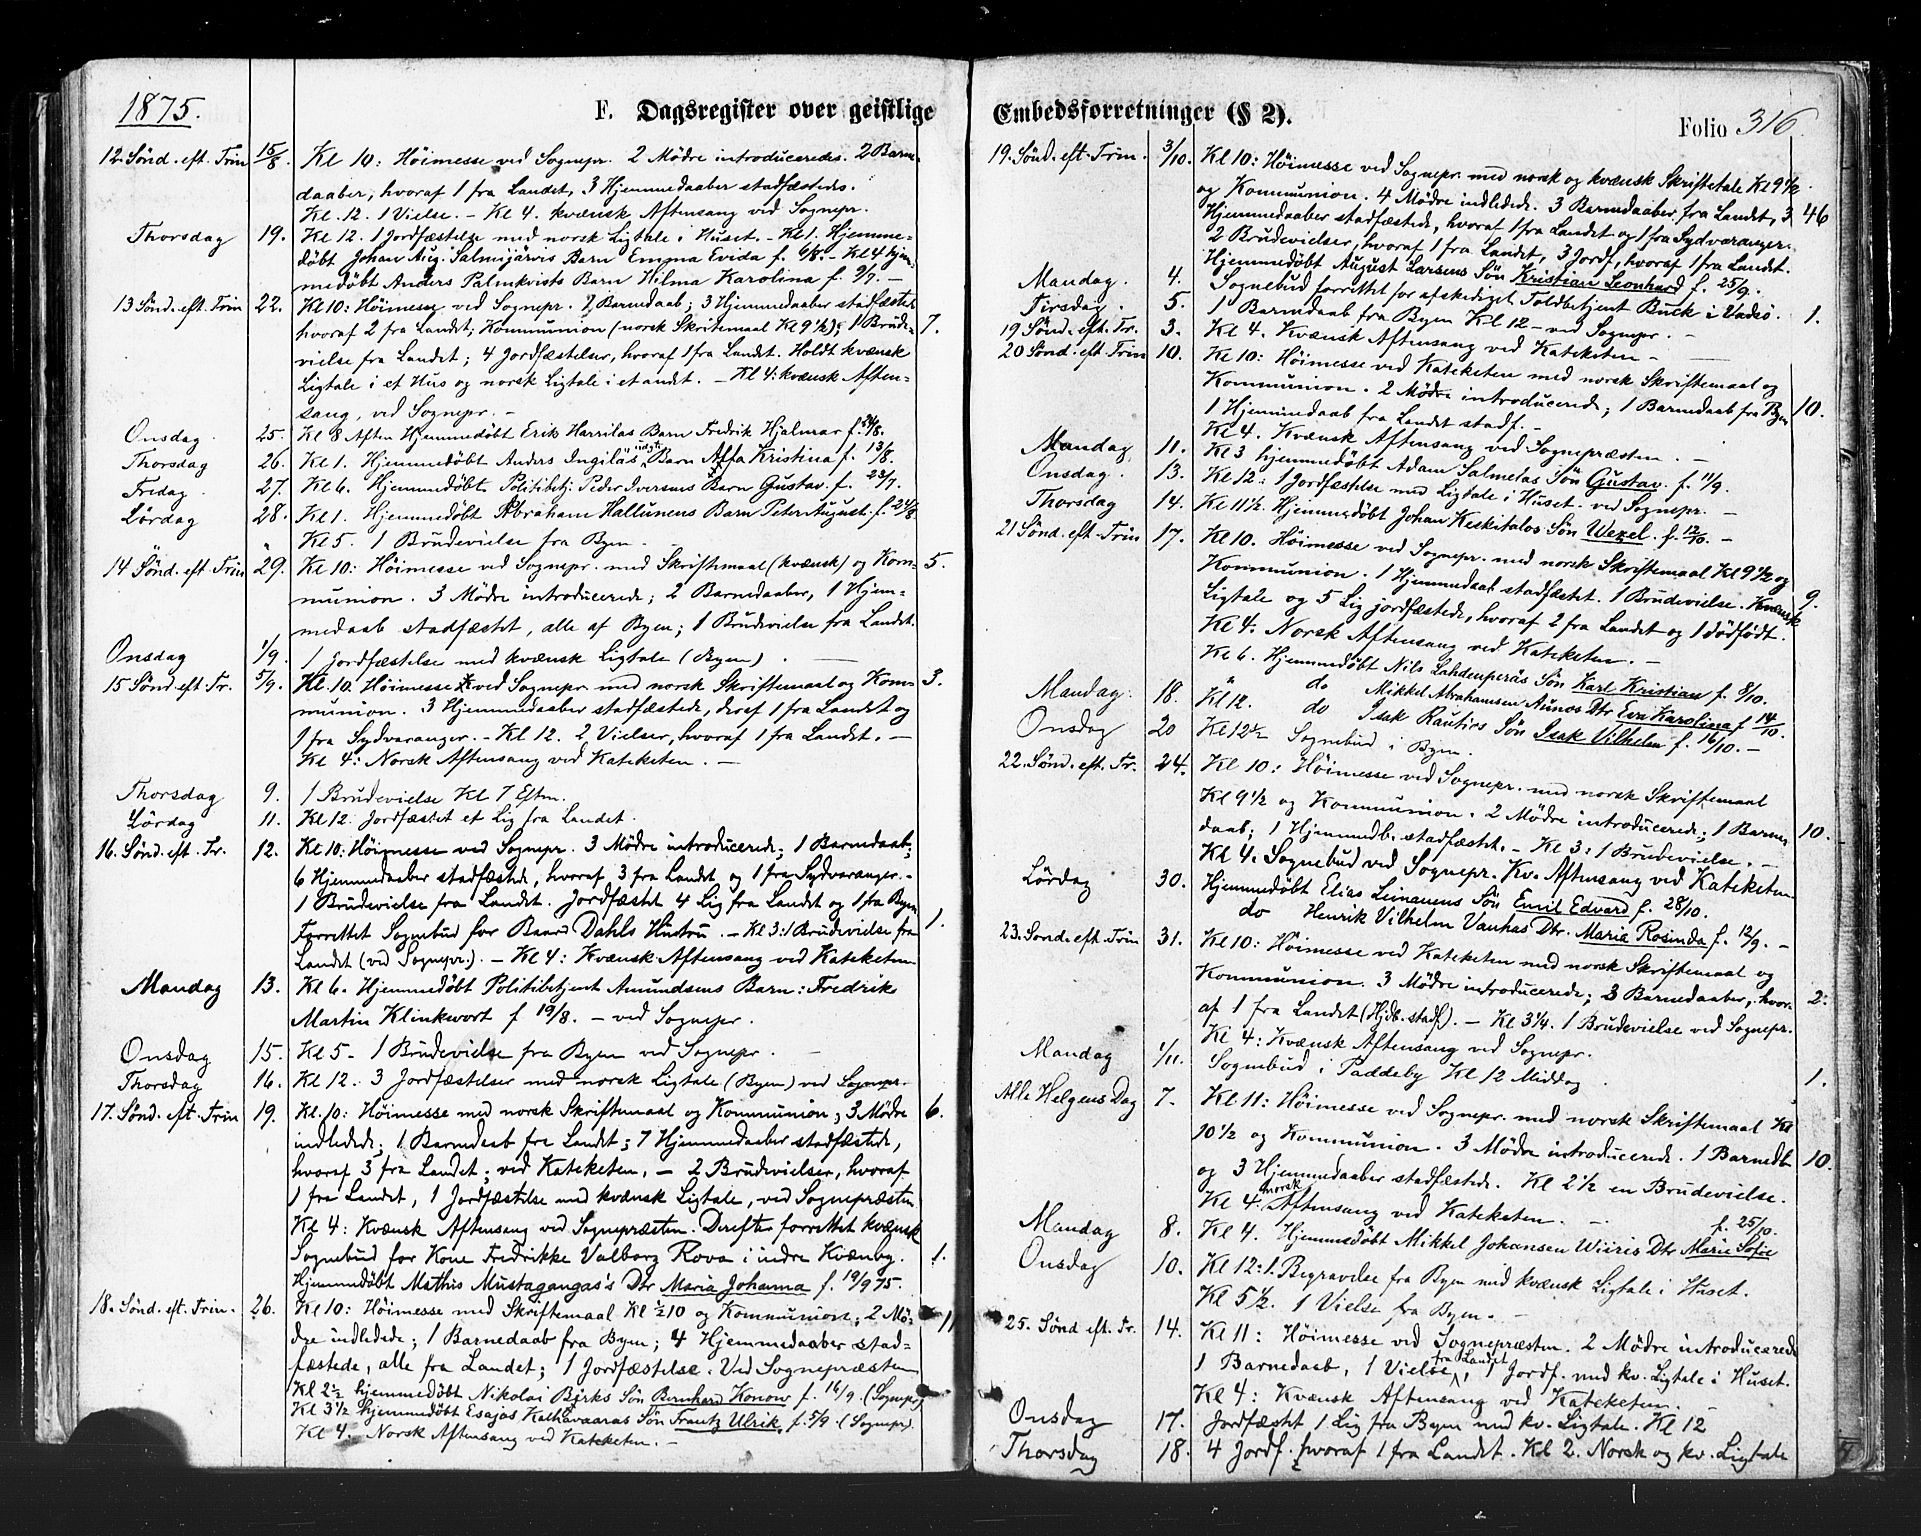 1875.
F. Dagsregister over geistlige
12. Sönd. eft. Trin 15/8. Kl 10: Höimesse ved Sognepr. 2 Mödre introduceredes. 2 Barn-
daaber, hvoraf 1 fra Landet, 3 Hjemmedaaber stadfæstedes.
Kl. 12. 1 Vielse. - Kl 4. kvænsk Aftensang ved Sognepr.
Thorsdag 19. Kl 12. 1 Jordfæstelse med norsk Ligtale i Huset. - Kl 1. Hjemme-
döbt Johan Aug. Salmijärvis Barn Emma Evida f. 6/8. - Kl 4 hjem-
medöbt Anders Palmkvists Barn Hilma Karolina f. 9/7. -
13 Sönd. eft. Trin 22. Kl 10: Höimesse ved Sognepr. 2 Barnedaab; 3 Hjemmedaaber stadfæstet
hvoraf 2 fra Landet, Kommunion (norsk Skriftemaal Kl 9½); 1 Brude- 7.
vielse fra Landet; 4 Jordfæstelser, hvoraf 1 fra Landet. Holdt kvænsk
Ligtale i et Hus og norsk Ligtale i et andt. - Kl 4: kvænsk Aften-
sang, ved Sognepr. -
Onsdag. 25. Kl 8 Aften Hjemmedöbt Erik Harrilas Barn Fredrik Hjalmar f. 24/8.
Thorsdag 26. Kl 1. Hjemmedöbt Anders Ingiläs Barn Alfa Kristina f. 13/8.
Fredag. 27. Kl 6. Hjemmedöbt Politibetj. Peder Iversens Barn Gustav f. 23/7.
Lördag 28. Kl 1. Hjemmedöbt Abraham Hallunens Barn Peter August f. 24/8
Kl 5. 1 Brudevielse fra Byen.
14 Sönd. eft. Trin 29. Kl 10: Höimesse ved Sognepr. med Skriftemaal (kvænsk) og Kom- 5.
munion. 3 Mödre introducerede; 2 Barnedaaber, 1 Hjem-
medaab stadfæstet, alle af Byen; 1 Brudevielse fra Landet.
Onsdag 1/9. 1 Jordfæstelse med kvænsk Ligtale (Byen).
15 Sönd eft. Tr. 5/9. Kl. 10. Höimesse ved Sognepr. med norsk Skriftemaal og Kom- 3.
munion. 3 Hjemmedaaber stadfæstede, deraf 1 fra Landet og
1 fra Sydvaranger. - Kl 12. 2 Vielser, hvoraf 1 fra Landet. -
Kl 4: Norsk Aftensang ved Kateketen. -
Thorsdag 9. 1 Brudevielse Kl 7 Eftm.
Lördag 11. Kl 12. Jordfæstet et Lig fra Landet.
16. Sönd. eft. Tr. 12. Kl 10: Höimesse ved Sognepr. 3 Mödre introducerede; 1 Barnedaab;
6 Hjemmedaaber stadfæstede, hvoraf 3 fra Landet og 1 fra Sydvaranger. -
1 Brudevielse fra Landet. Jordfæstet 4 Lig fra Landet og 1 fra Byen.
Forrettet Sognebud for Baard Dahls Hustru. - Kl 3: 1 Brudevielse fra 1.
Landet (ved Sognepr.). - Kl 4: Kvænsk Aftensang ved Kateketen
Mandag 13. Kl 6. Hjemmedöbt Politibetjent Amundsens Barn: Fredrik
Martin Klinkwort f 19/8. - ved Sognepr.
Onsdag 15. Kl 5 - 1 Brudevielse fra Byen ved Sognepr.
Thorsdag 16. Kl 12. 3 Jordfæstelser med norsk Ligtale (Byen) ved Sognepr.
17. Sönd. eft. Trin 19. Kl. 10: Höimesse med norsk Skriftemaal og Kommunion; 3 Mödre 6.
indledede; 1 Barnedaab fra Landet; 7 Hjemmedaaber stadfæstede,
hvoraf 3 fra Landet; ved Kateketen. - 2 Brudevielser, hvoraf
1 fra Landet, 1 Jordfæstelse med kvænsk Ligtale, ved Sognepræsten
Kl 4: Kvænsk Aftensang ved Sognepræsten. Derefter forrettet kvænsk
Sognebud for Kone Fredrikke Valborg Rova i indre Kvænby. 1.
Hjemmedöbt Mathis Mustagangas's Dtr Maria Johanna f. 19/9 75.
18. Sönd. eft. Trin. 26. Kl 10: Höimesse med Skriftemaal Kl ½10 og Kommunion; 2 Mö- 11
dre indledede; 1 Barnedaab fra Byen; 4 Hjemmedaaber stad-
fæstede, alle fra Landet; 1 Jordfæstelse. Ved Sognepræsten
Kl 2½ hjemmedöbt Nikolai Björks Sön Bernhard Konow f. 16/9 (Sognepr.)
Kl 3½ hjemmedöbt Esajas Kalhavaaras Sön Frantz Ulrik, f. 5/9. (Sognepr).
Kl 4. Norsk Aftensang ved Kateketen. -
Embedsforretninger (§ 2).
Folio 316.
19. Sönd. eft. Trin. 3/10. Kl 10: Höimesse ved Sognepr. med norsk og kvænsk Skriftetale Kl 9½
og Kommunion. 4 Mödre indledede. 3 Barnedaaber fra Landet, 3 46
Hjemmedaaber stadfæstede, hvoraf 1 fra Landet og 1 fra Sydvaranger.
2 Brudevielser, hvoraf 1 fra Landet, 3 Jordf. hvoraf 1 fra Landet.
Hjemmedöbt August Larsens Sön Kristian Leonhard f. 25/9.
Mandag. 4. Sognebud forrettet for afskediget Toldbetjent Buck i Vadsö. 1.
Tirsdag. 5. 1 Barnedaab fra Byen Kl 12 - ved Sognepr.
19 Sönd. eft. Tr. 3. Kl 4. Kvænsk Aftensang ved Kateketen -
20 Sönd. eft. Trin 10. Kl 10: Höimesse ved Kateketen med norsk Skriftemaal og
Kommunion. 2 Mödre introducerede; 1 Barnedaab fra Byen 10.
1 Hjemmedaab fra Landet stadf. -
Kl 4. Kvænsk Aftensang ved Sognepræsten. -
Mandag 11. Kl 3 hjemmedöbt Adam Salmelas Sön Gustav. f. 11/9.
Onsdag. 13. Kl 12: 1 Jordfæstelse med Ligtale i Huset. ved Sognepr. -
Thorsdag 14. Kl 11½. Hjemmedöbt Johan Keskitalos Sön Wexel. f. 12/10. -
21 Sönd. eft. Trin 17. Kl 10. Höimesse ved Sognepr. med norsk Skriftemaal Kl 9½ og
Kommunion. 1 Hjemmedaab stadfæstet. 1 Brudevielse. Kvænsk 9.
Ligtale og 5 Lig jordfæstede, hvoraf 2 fra Landet og 1 dödfödt.
Kl 4. Norsk Aftensang ved Kateketen. -
Kl 6. Hjemmedöbt Nils Lahdenperäs Sön Karl Kristian f. 8/10.
Mandag. 18. Kl 12. do Mikkel Abrahamsen Aunos Dtr Eva Karolina f 14/10.
Onsdag 20 do Isak Rautios Sön Isak Vilhelm f. 16/10. -
Kl 12½ Sognebud i Byen.
22. Sönd. eft. Tr. 24. Kl 10: Höimesse ved Sognepr. med norsk Skriftemaal
Kl 9½ og Kommunion. 2 Mödre introducerede; 1 Barne- 10.
daab; 1 Hjemmedb. stadfæstet. - Kl 3: 1 Brudevielse. -
Kl 4. Sognebud ved Sognepr. Kv. Aftensang ved Kateketen
Lördag 30. Hjemmedöbt Elias Leinanens Sön Emil Edvard f. 28/10.
do Henrik Vilhelm Vanhas Dtr. Maria Rosinda f. 12/9. -
23. Sönd. eft. Trin 31. Kl 10: Höimesse ved Kateketen med norsk Skriftemaal og
Kommunion. 3 Mödre introducerede; 3 Barnedaaber, hvor- 2.
af 1 fra Landet (Hjdb. stadf.). - Kl 3¼. 1 Brudevielse ved Sognepr.
Kl 4: Kvænsk Aftensang ved Sognepr.
Mandag 1/11. Sognebud i Paddeby Kl 12 Middag. 1.
Alle Helgens Dag 7. Kl 11: Höimesse ved Sognepr. med norsk Skriftemaal Kl
10½ og Kommunion. 3 Mödre introducerede. 1 Barnedb 10.
og 3 Hjemmedaaber stadfæstede. Kl 2½ en Brudevielse.
Kl 4: norsk Aftensang ved Kateketen. -
Mandag 8. Kl 4. Hjemmedöbt Mikkel Johansen Wiiris Dtr Marie Sofie f. 25/10.
Onsdag 10. Kl 12: 1. Begravelse fra Byen med kvænsk Ligtale i Huset.
Kl 5½. 1 Vielse fra Byen. -
25. Sönd eft. Tr. 14. Kl 11: Höimesse ved Sognepræsten. 2 Mödre introducerede
1 Barnedaab, 1 Vielse fra Landet, 1 Jordf. med kv. Ligtale i Huset.
Kl 4: Kvænsk Aftensang ved Kateketen. -
Onsdag 17. Jordfæstet 1 Lig fra Byen med kv. Ligtale. Kl 12
Thorsdag 18. 4 Jordf. hvoraf 1 fra Landet. Kl 2. Norsk og kv. Ligtale